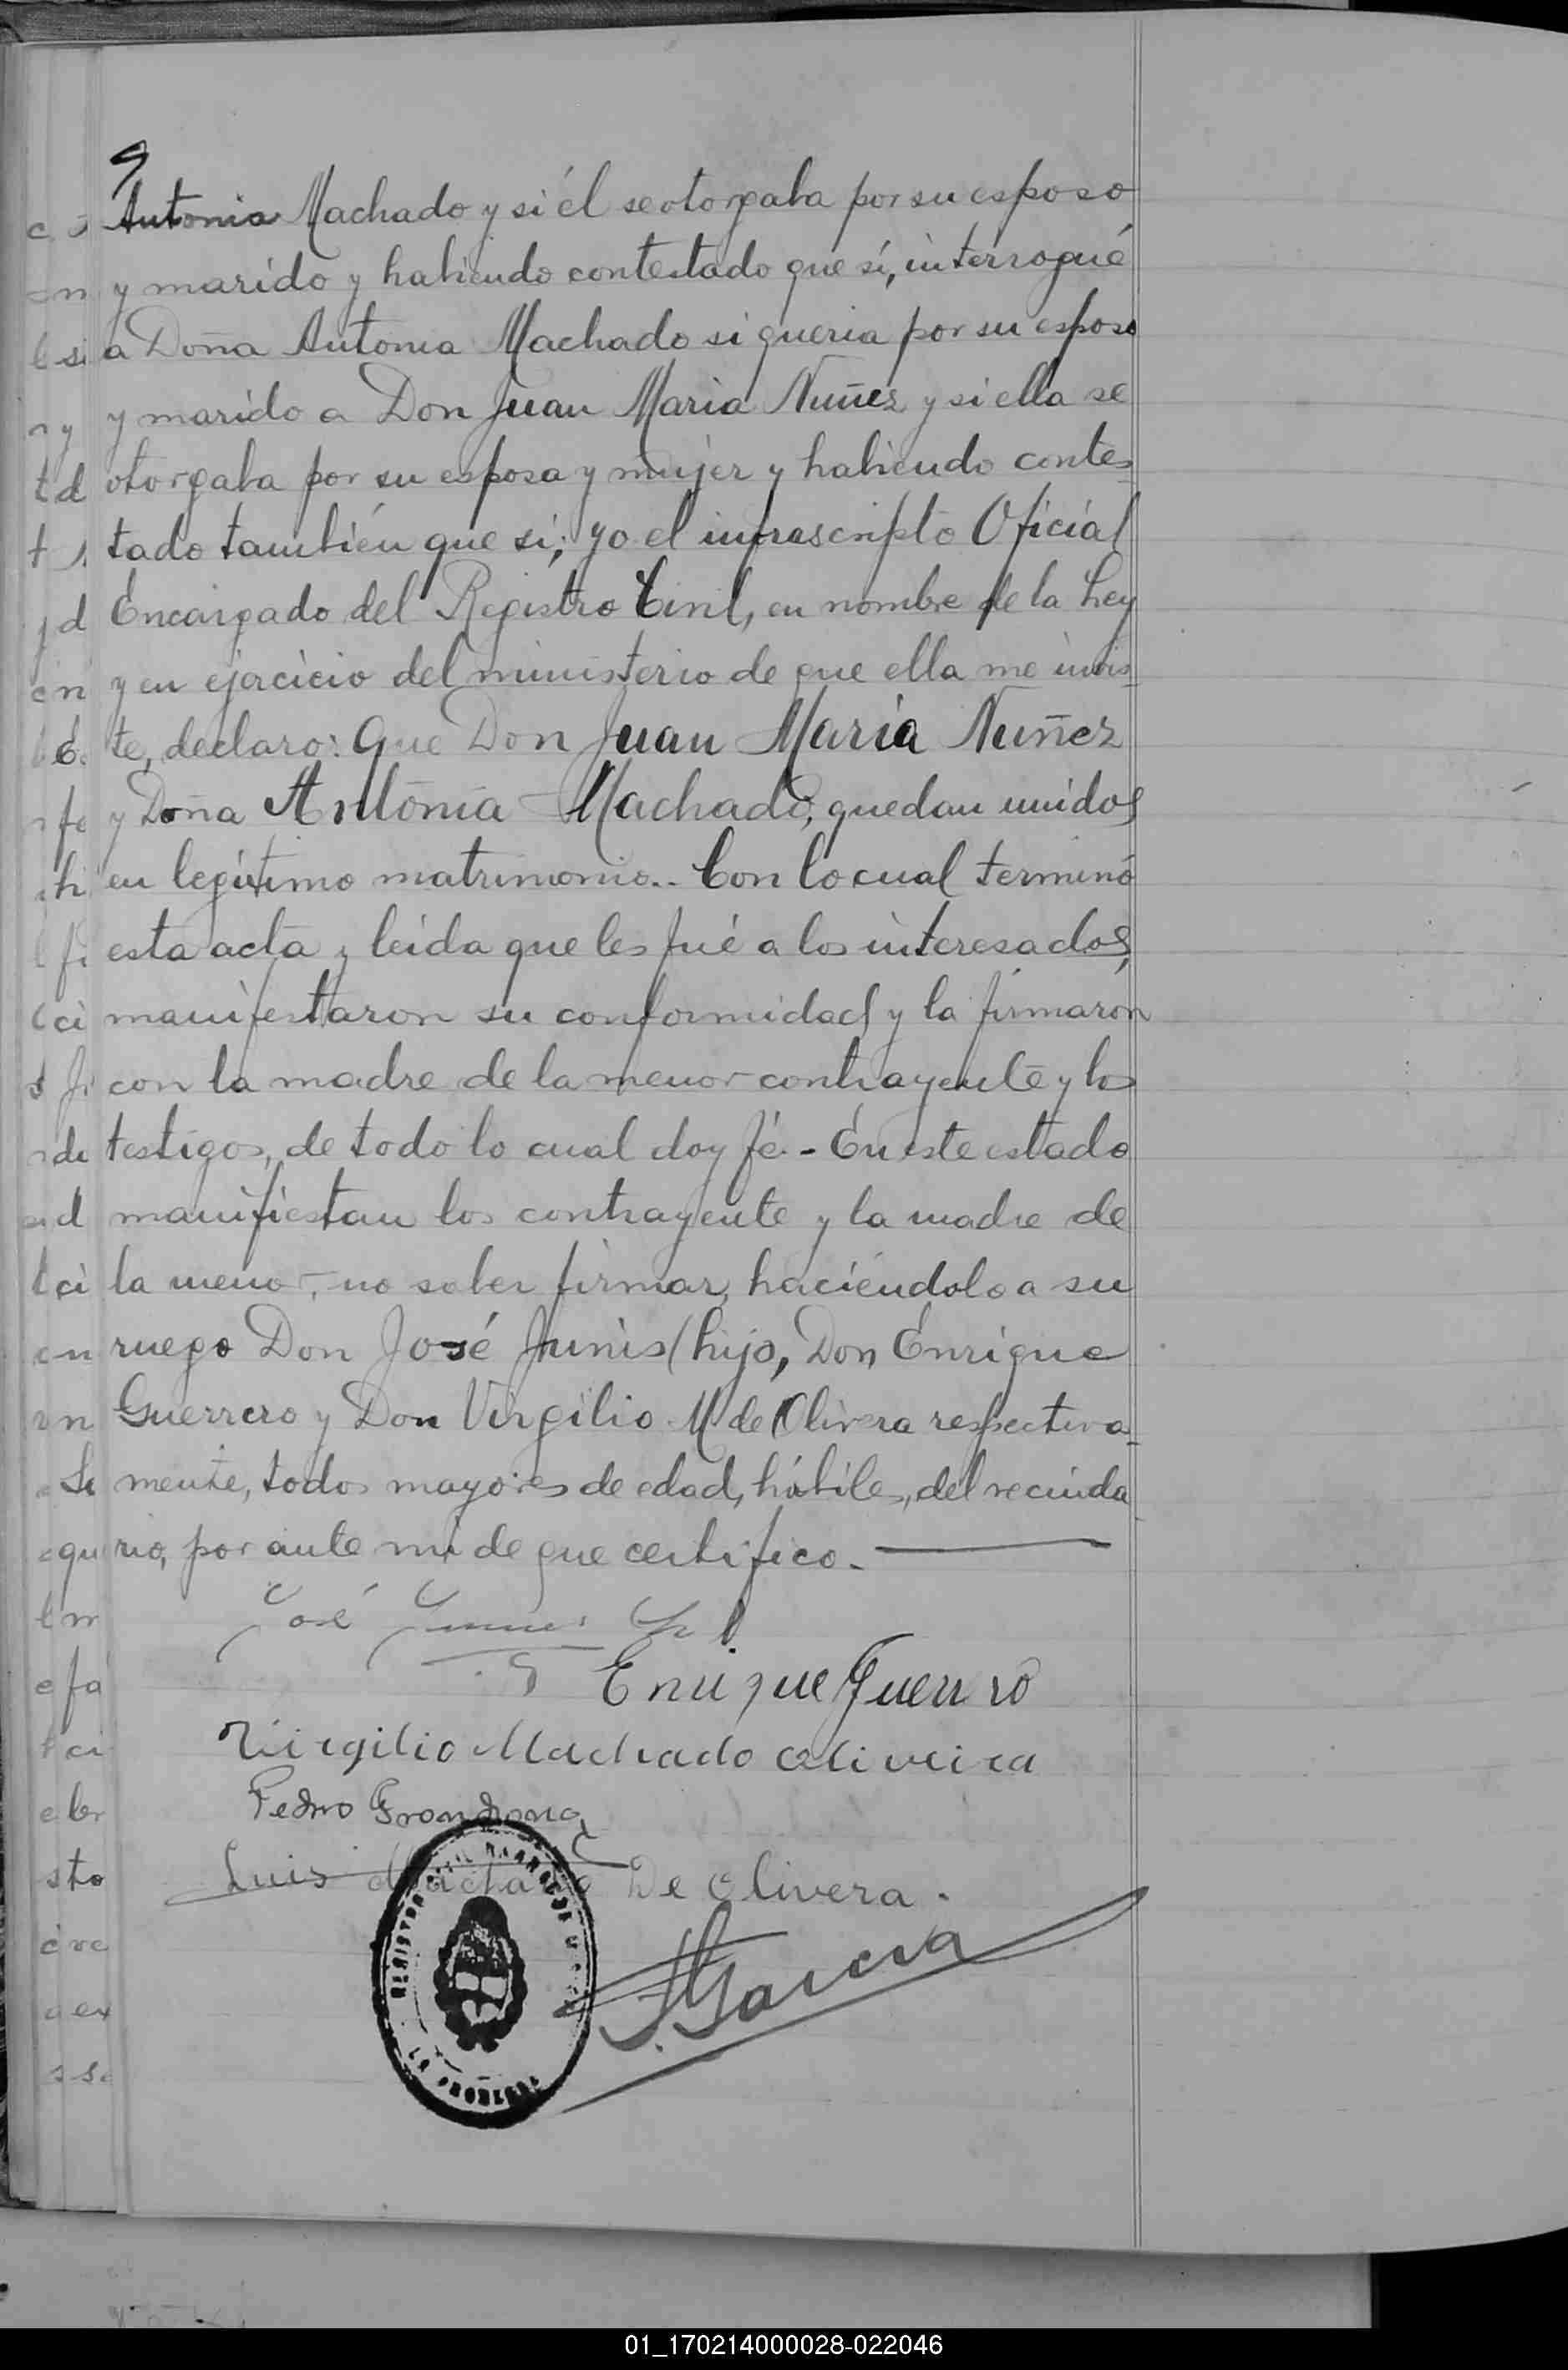 9
Antonia Machado y si él se otorgaba por su esposo
y marido y habiendo contestado que sí, interrogué
a Doña Antonia Machado si queria por su esposo
y marido a Don Juan Maria Nuñez y si ella se
otorgaba por su esposa y mujer y habiendo contes_
tado también que si; yo el infrascripto Oficial
Encargado del Registro Civil, en nombre de la Ley
y en ejercicio del ministerio de que ella me invis_
te, declaro: Que Don Juan María Nuñez
y Doña Antonia Machado, quedan unidos
en legítimo matrimonio.- Con lo cual terminó
esta acta y leida que les fué a los interesados,
manifestaron su conformidad y la firmaron
con la madre de la menor contrayente y los
testigos, de todo lo cual doy fé.- En este estado
manifiestan los contrayente y la madre de
la menor, no saber firmar, haciéndolo a su
ruego Don José Junis (hijo, Don Enrique
Guerrero y Don Virgilio M de Olivera respectiva_
mente, todos mayores de edad, hábiles, del vecinda_
rio, por ante mi de que certifico.-
José
Enrique Guerrero
Virgilio Machado Oliveira
Pedro Grondona
Luis Machado De Olivera.
Garcia
01_170214000028-022046